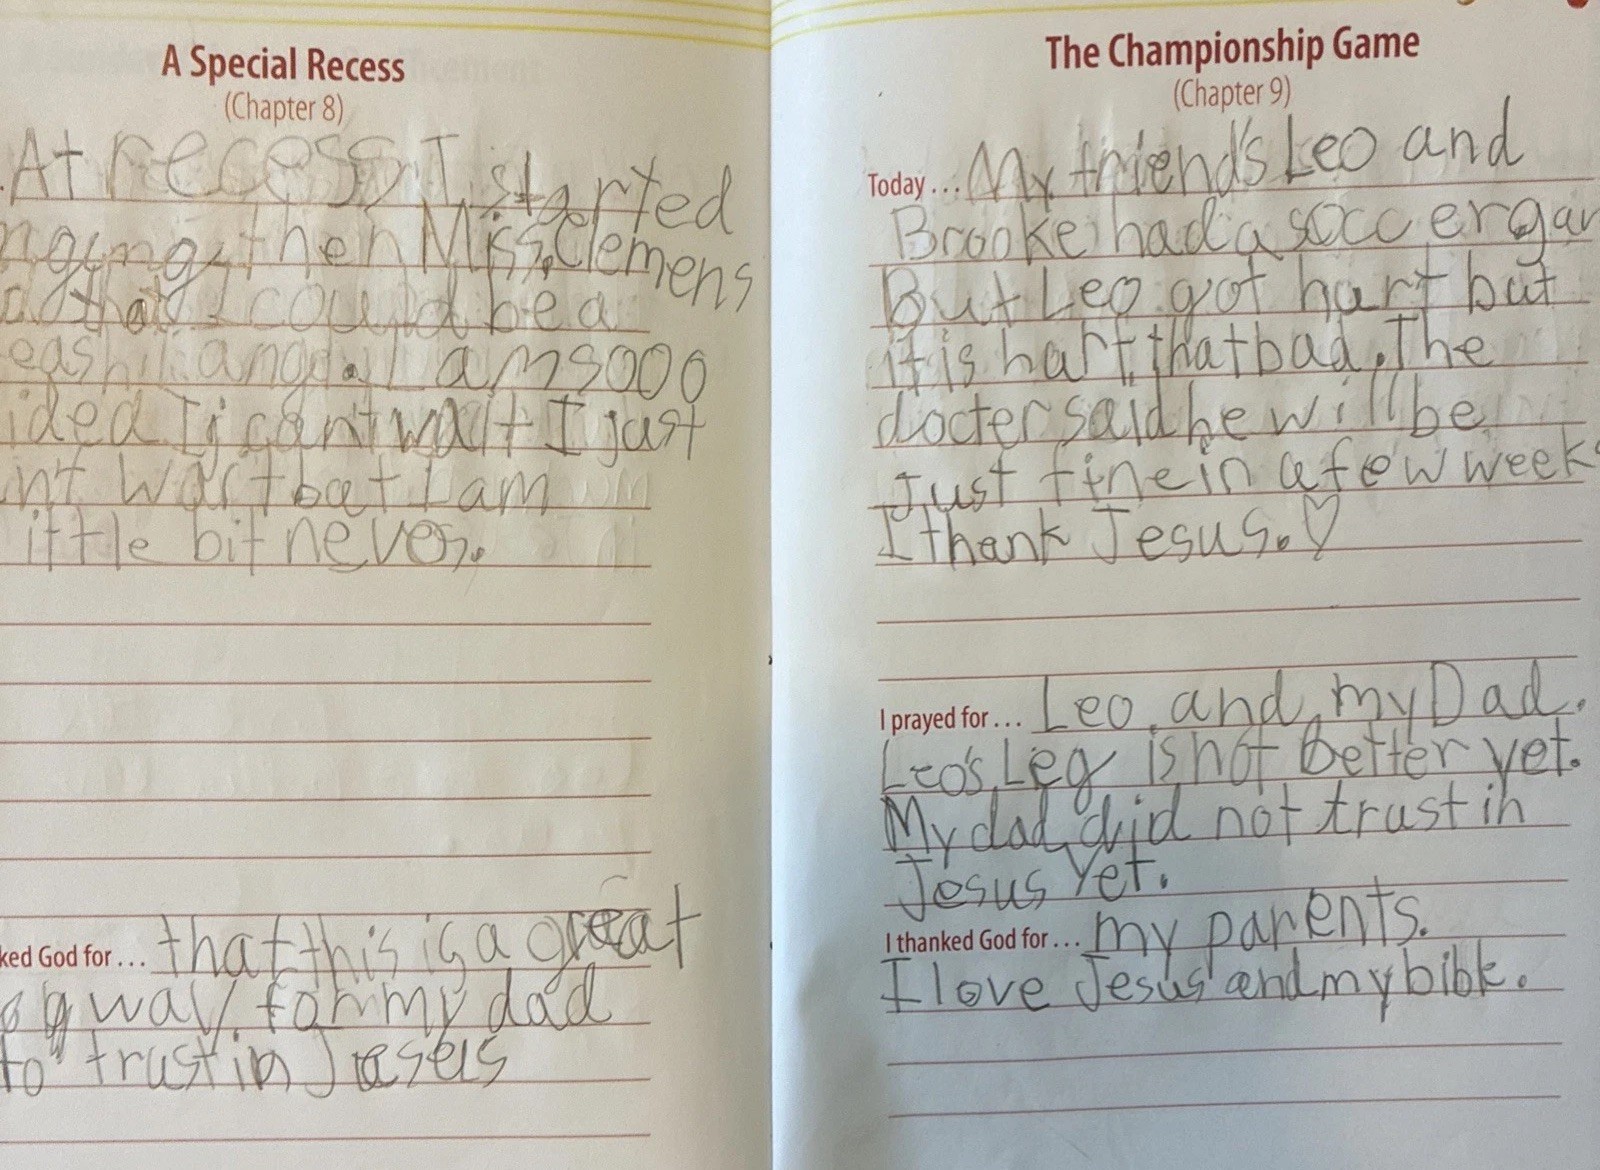 A Special Recess
(Chapter 8)
At recess I started
then Miss Clemens
that I could be a
I am sooo
I can't wait I just
wart but I am
ittle bit nevos.
ked God for... that this is a great
way for my dad
to trust in Jesels
The Championship Game
(Chapter 9)
Today... My friend's Leo and
Brooke had a soccer gam
But Leo got hurt but
it is hart that bad. The
docter said he will be
Just fine in a few week
I thank Jesus. ♡
I prayed for... Leo and my Dad.
Leo's Leg is not better yet.
My dad did not trust in
Jesus Yet.
I thanked God for... my parents.
I love Jesus and my bible.